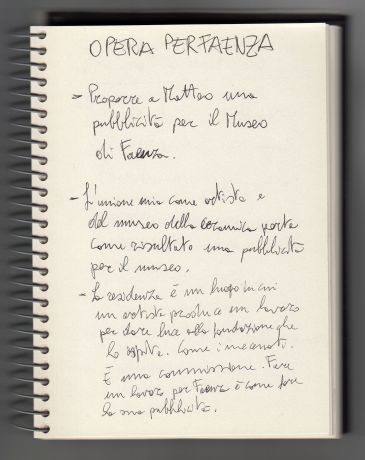 OPERA PER FAENZA
- Proporre a Matteo una
pubblicità per il Museo
di Faenza.
- L'unione mia come artista e
del museo della ceramica porta
come risultato una pubblicità
per il museo.
- La residenza è un luogo in cui
un artista produce un lavoro
per dare luce alla fondazione che
lo ospita. Come i mecenati.
È una commissione. Fare
un lavoro per Faenza è come fare
la sua pubblicità.